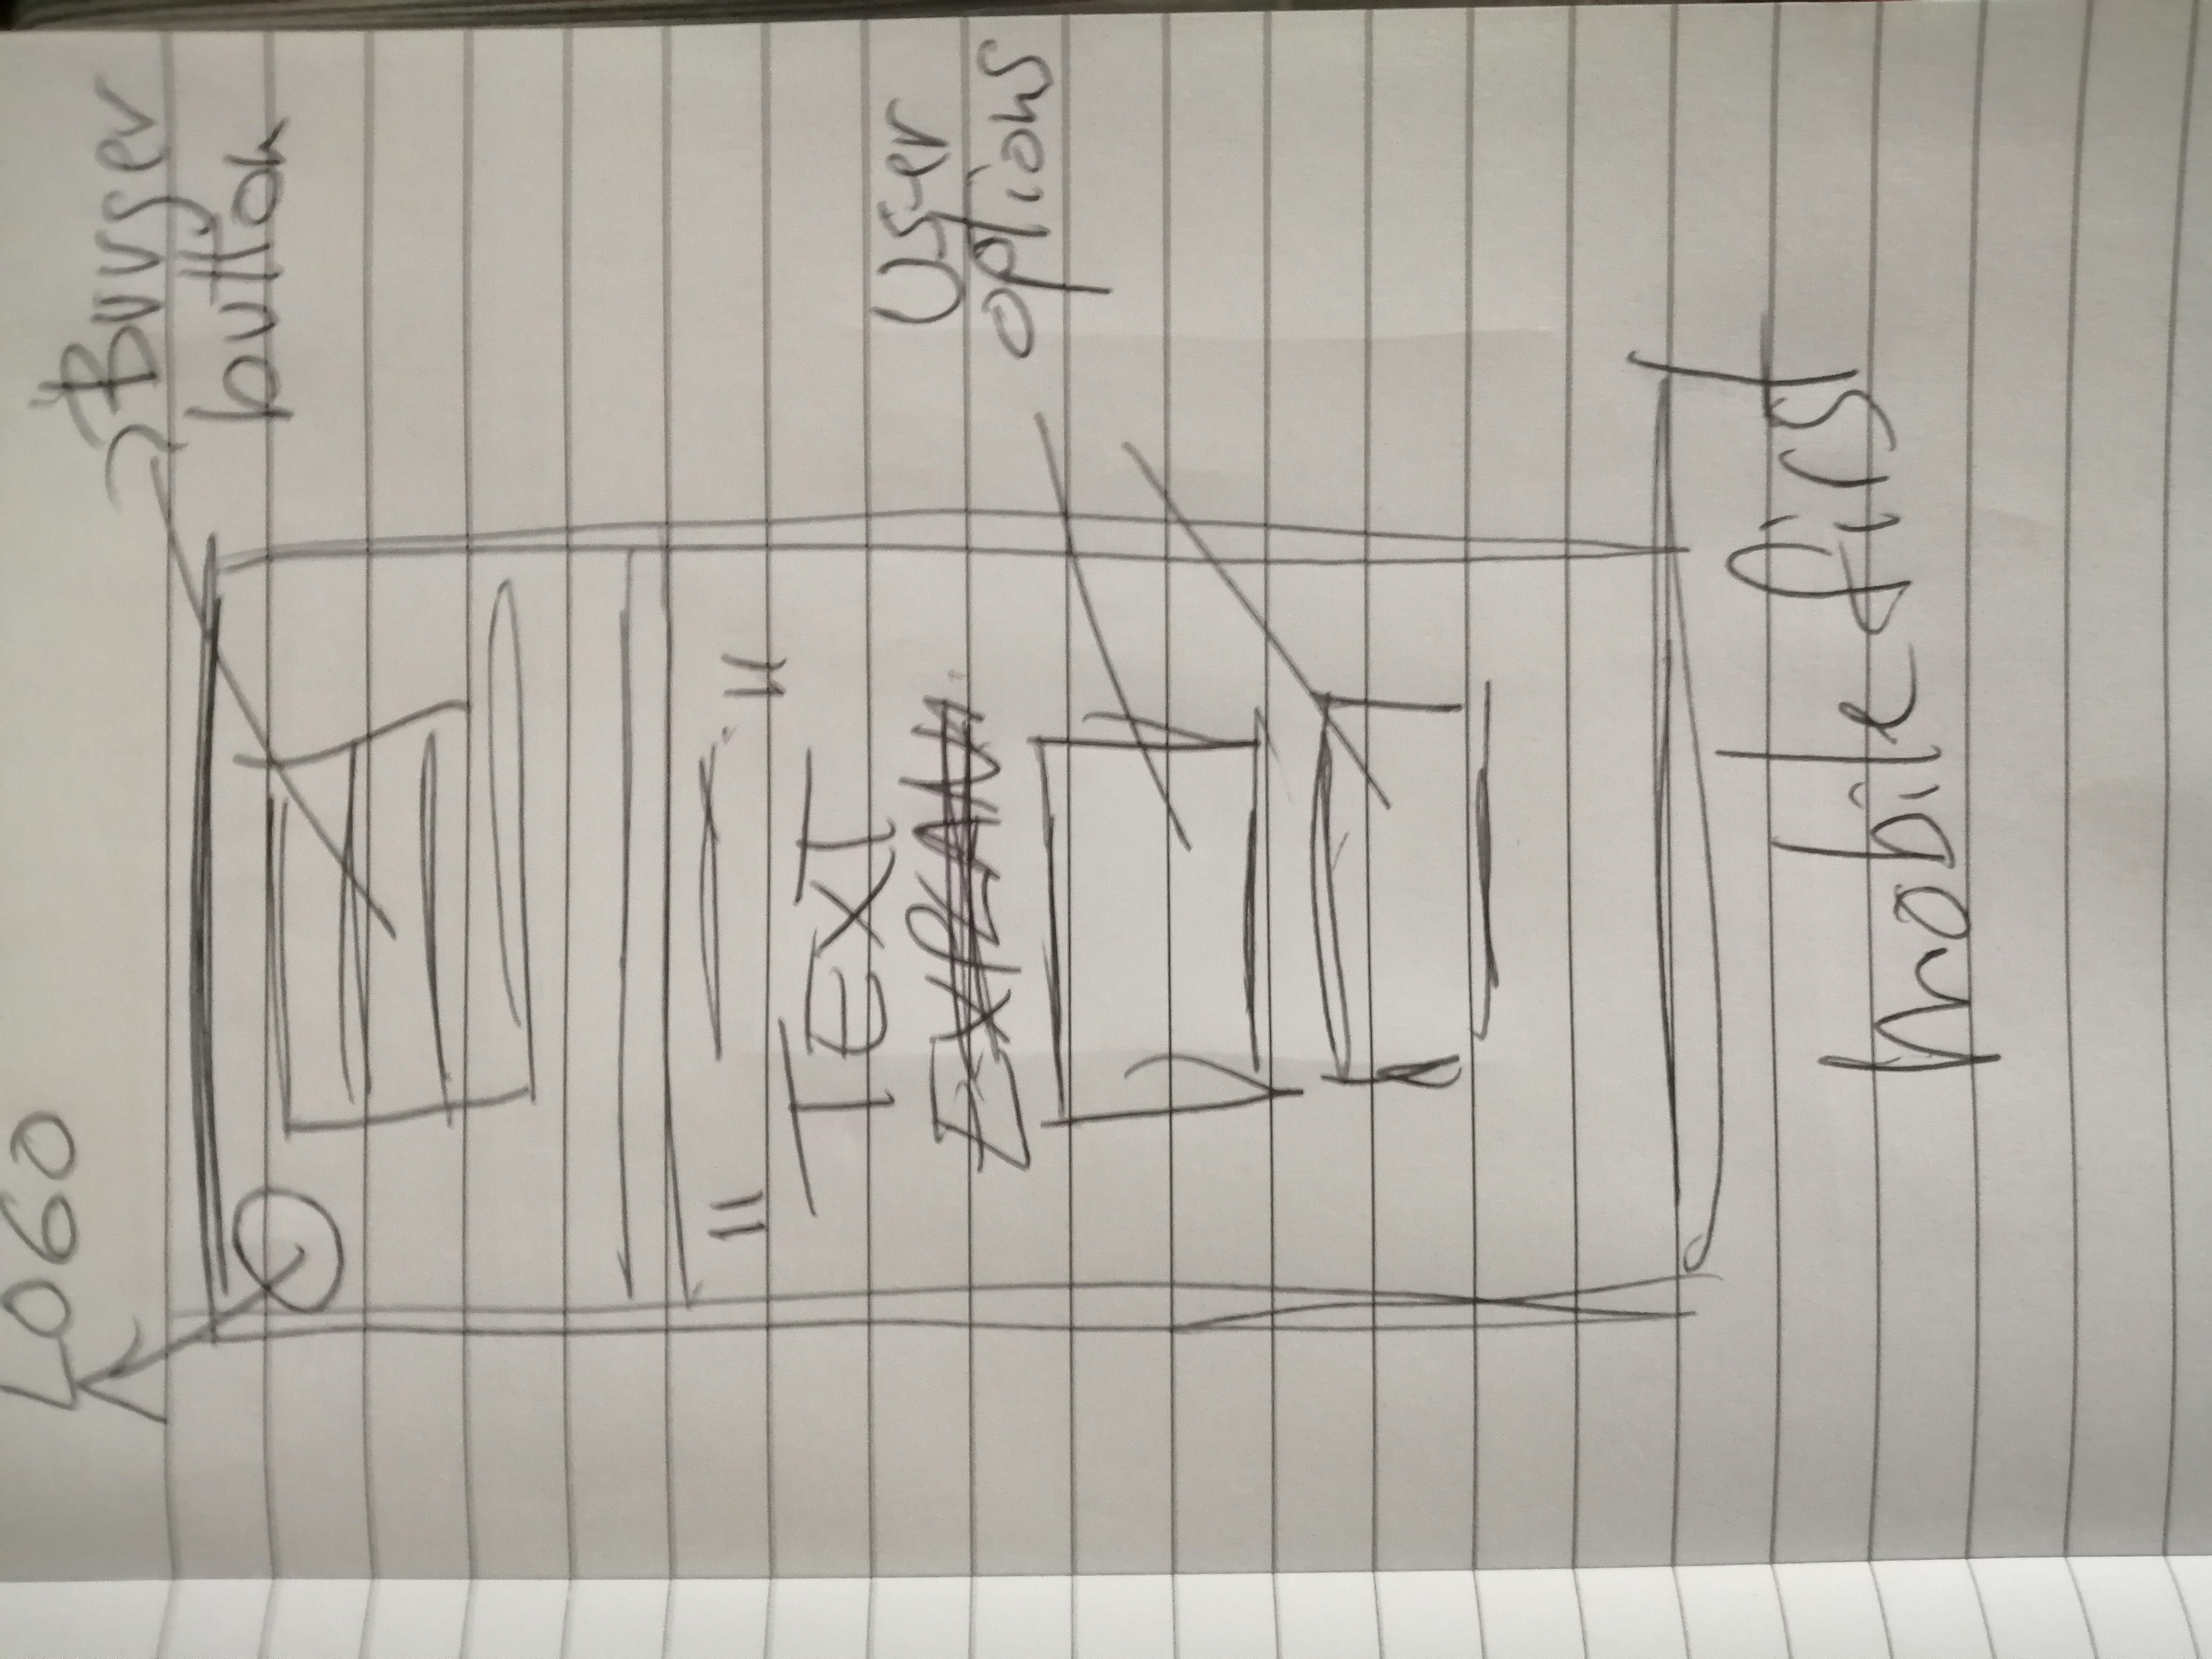 LOGO
Burger
button
" "
TEXT
EXPLAN
User
options
mobile first